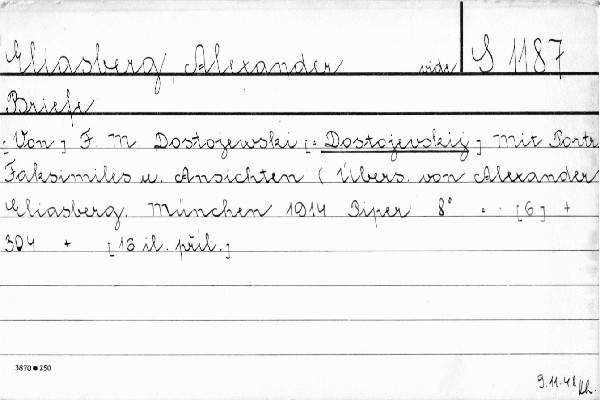 Eliasberg, Alexander vide S 1187
Briefe
[Von] F M Dostojewski [= Dostojevskij] Mit Portr.
Faksimiles u. Ansichten (Übers. von Alexander
Eliasberg. München 1914 Piper 8° . . [6] +
304 + [16 il. příl.]
3870 ● 250
9.11.48